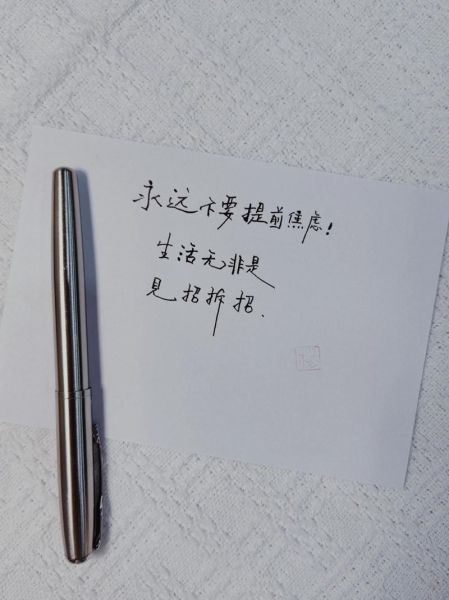 永远不要提前焦虑!
生活无非是
見招拆招.